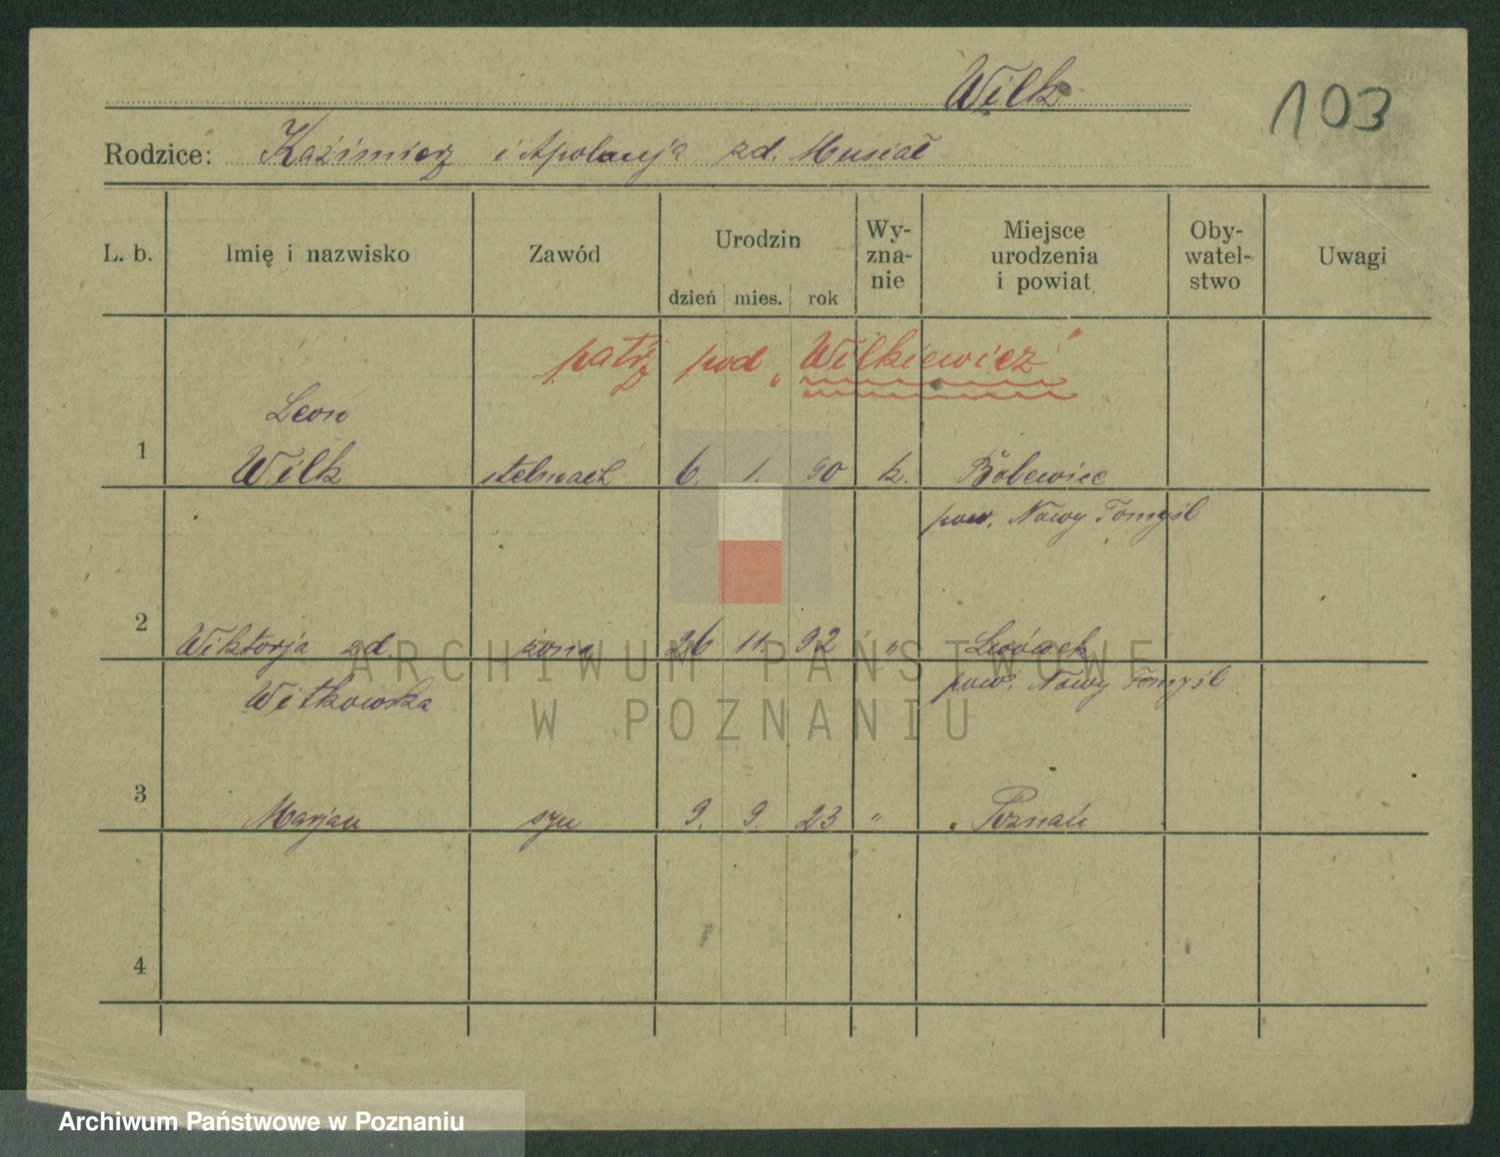 Wilk
103
Rodzice: Kaźimierz i Apolonja zd. Musiał
L. b. Imię i nazwisko Zawód Urodzin Wy-zna-nie Miejsce urodzenia i powiat Oby-watel-stwo Uwagi
dzień mies. rok
patrz pod „Wilkiewicz"
Leon
1 Wilk stelmach 6. 1. 90 k. Bolewice
pow. Nowy Tomyśl
2 Wiktorja zd. żona 26 11. 92 „ Lwówek
Witkowska pow. Nowy Tomyśl
3 Marjan syn 9. 9. 23 „ Poznań
4
ARCHIWUM PAŃSTWOWE
W POZNANIU
Archiwum Państwowe w Poznaniu